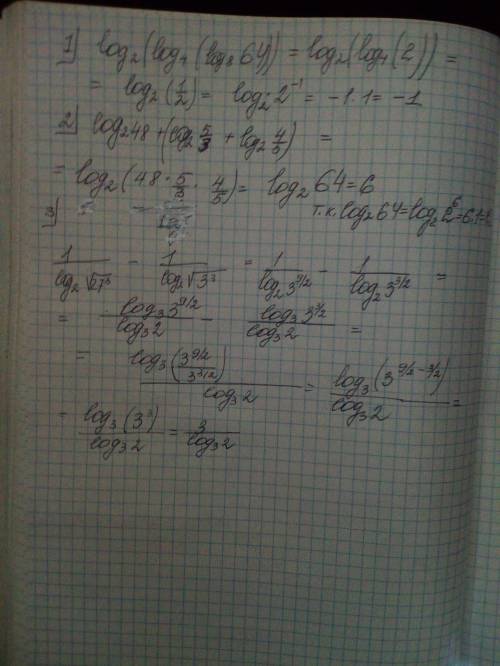 1) log₂(log₄(log₈ 64)) = log₂(log₄(2)) =
= log₂(1/2) = log₂ 2⁻¹ = -1·1 = -1
2) log₂48 + (log₂ 5/3 + log₂ 4/5) =
= log₂(48 · 5/3 · 4/5) = log₂ 64 = 6
т.к. log₂ 64 = log₂ 2⁶ = 6·1 =
3)
1/log₂√27³ - 1/log₂√3³ = 1/log₂3^(9/2) - 1/log₂3^(3/2) =
= log₃3^(9/2)/log₃2 - log₃3^(3/2)/log₃2 =
= log₃(3^(9/2)/3^(3/2))/log₃2 = log₃(3^(9/2-3/2))/log₃2 =
= log₃(3³)/log₃2 = 3/log₃2